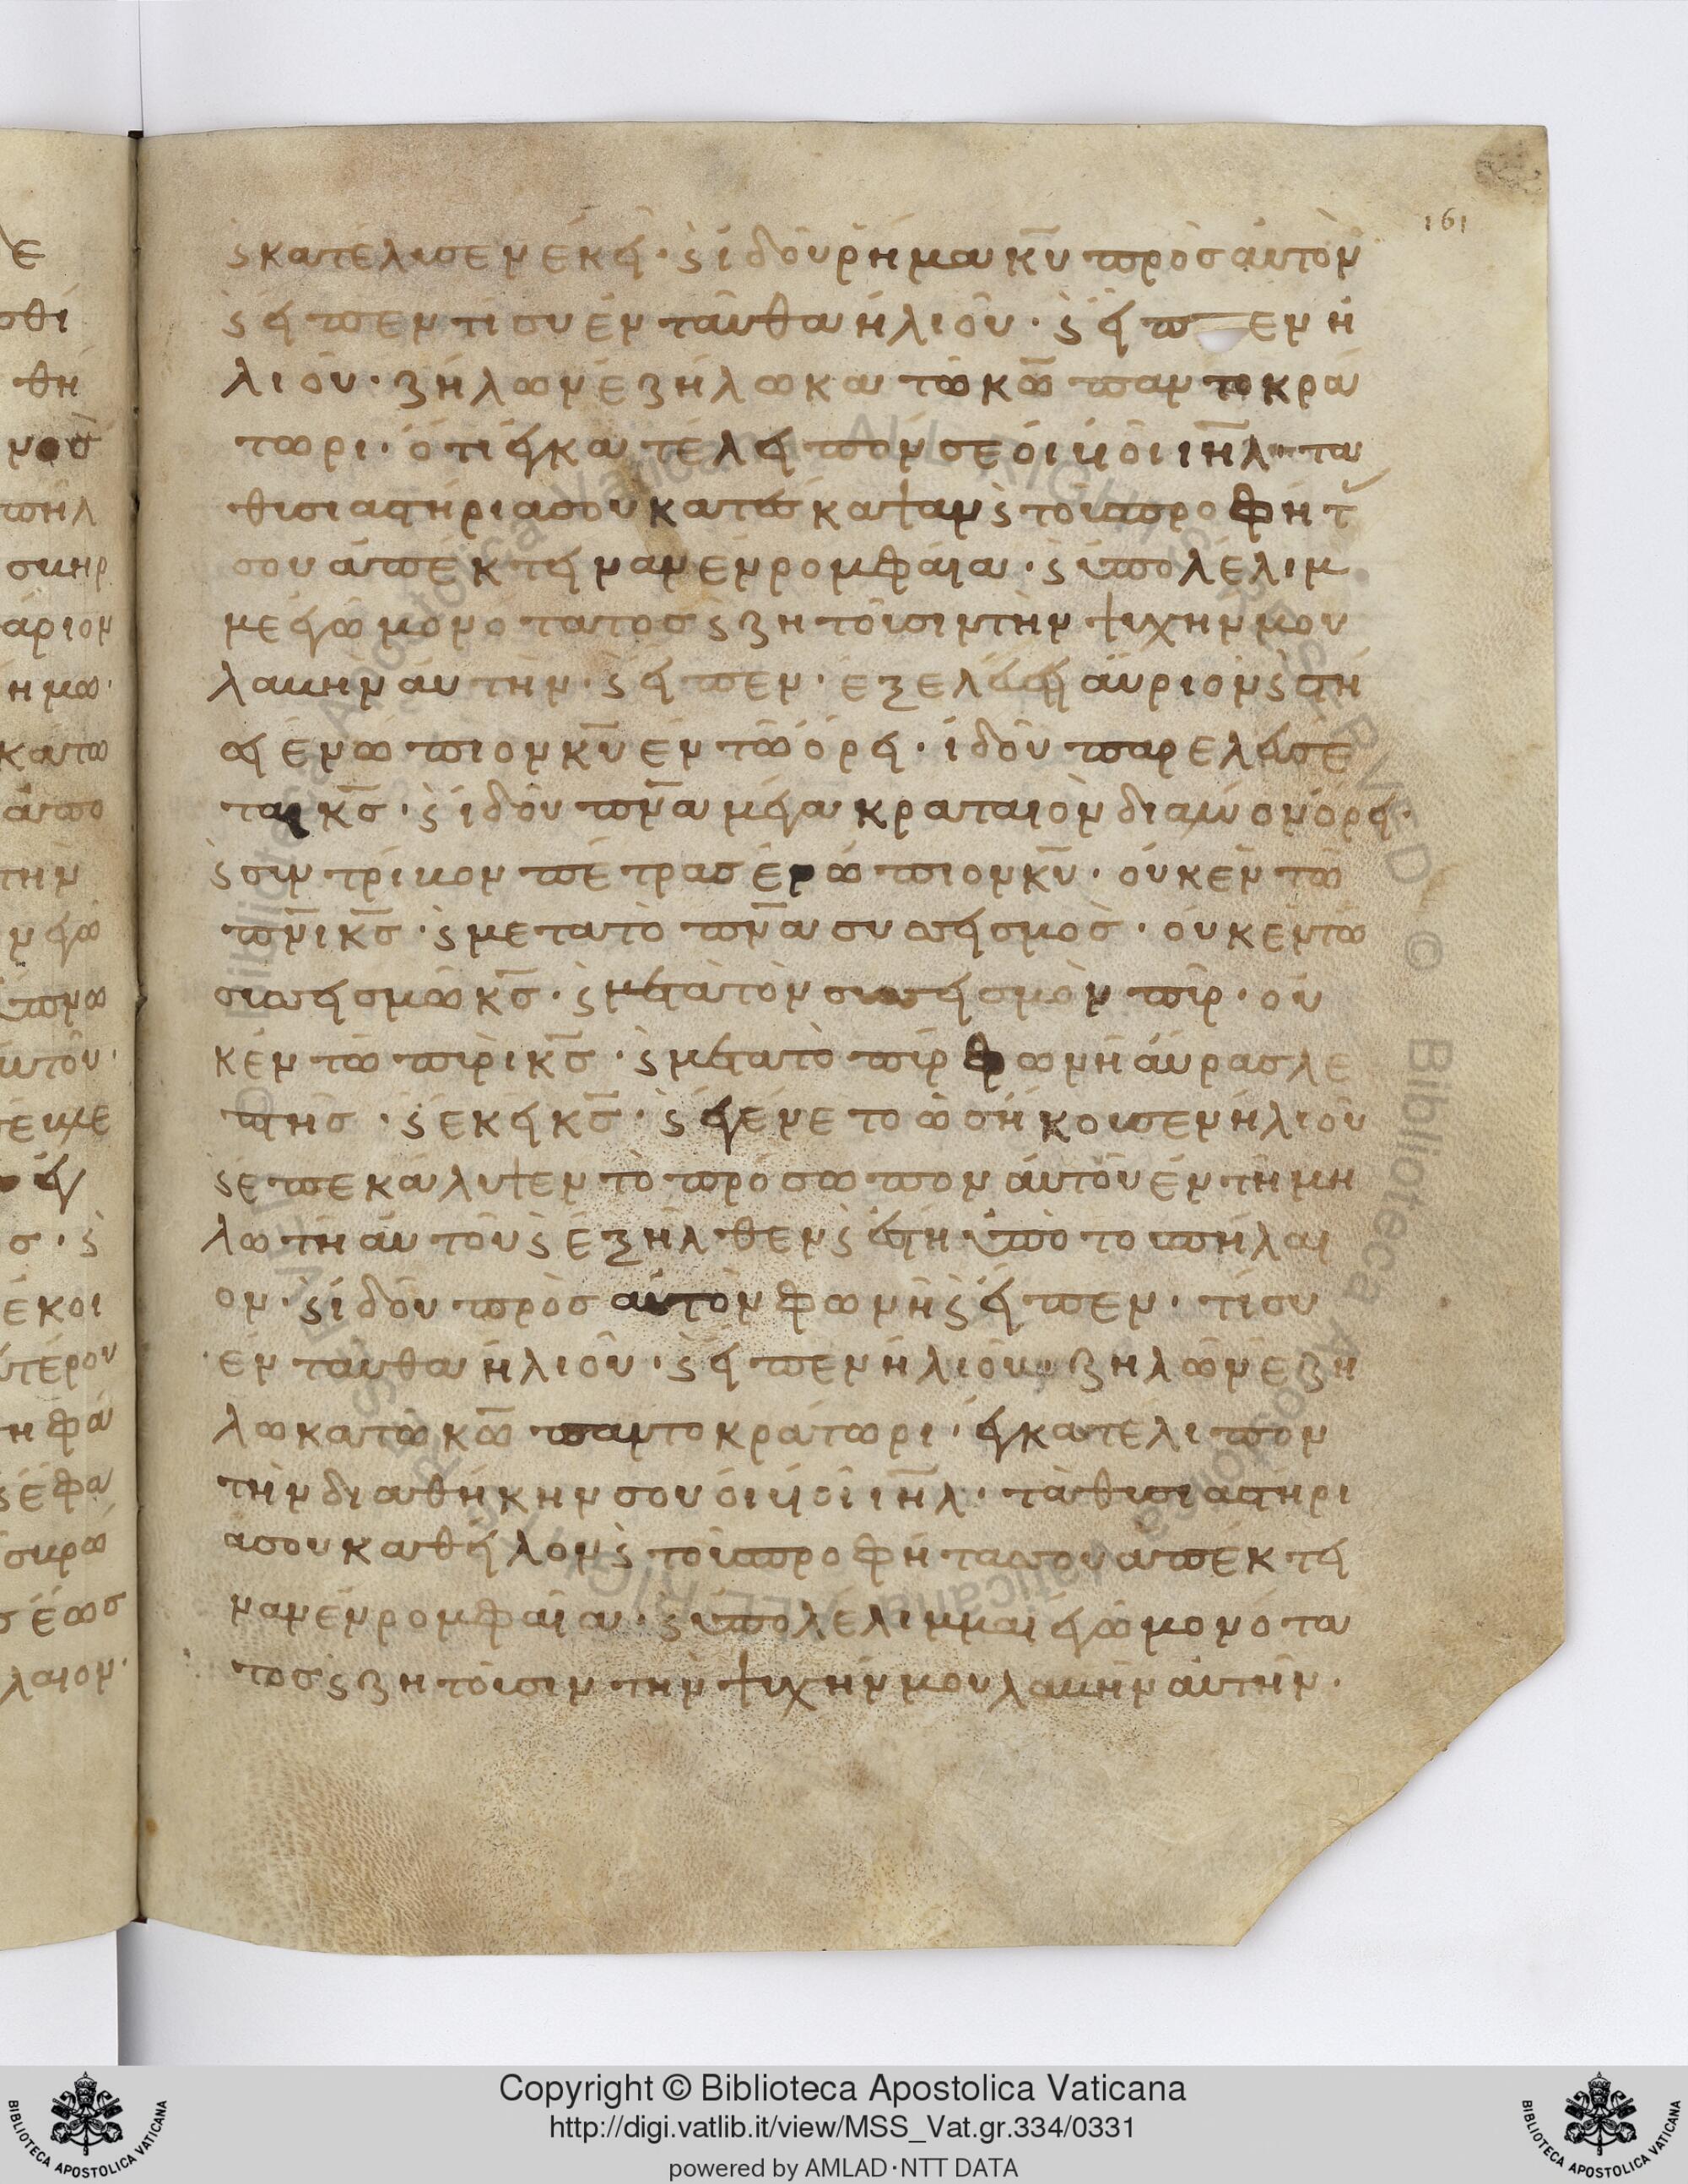 161
ϛ κατέλισεν ἐκεῖ· ϛ ἰδοὺ ρῆμα κ̅υ̅ πρὸς αὐτὸν
ϛ εἶπεν τί συ ἐνταῦθα ἠλιοῦ· ϛ εἶπεν ἠ
λιού· ζηλῶν ἐζήλωκα τῶ κ̅ω̅ παντοκρά
τωρι· ὅτι ἐγκατέλειπόν σε οἱ υἱοὶ ι̅η̅λ̅· τα
θισιαστήριά σου κατέσκαψαν ϛ τοὺς προφήτ
σου ἀπέκτειναν ἐν ρομφαία· ϛ ὑπολέλιμ
με ἐγὼ μονότατος ϛ ζητοῦσιν τὴν ψυχήν μου
λαβῆν αὐτήν· ϛ εἶπεν· ἐξελεύσει αὔριον ϛ στή
σει ἐνώπιον κ̅υ̅ ἐν τῶ ὄρει· ἰδοὺ παρελεύσε
ται κ̅σ̅· ϛ ἰδοὺ π̅ν̅α̅ μέγα κραταιὸν διαλύον ὄρει·
ϛ συντρίβον πέτρας ἐνώπιον κ̅υ̅· οὐκ ἐν τῶ
π̅ν̅ι̅ κ̅σ̅· ϛ μετα τὸ π̅ν̅α̅ συσσεισμός· οὐκ ἐν τῶ
συσσεισμῶ κ̅σ̅· ϛ μετὰ τὸν συσσεισμὸν πῦρ· οὐ
κ ἐν τῶ πυρὶ κ̅σ̅· ϛ μετα τὸ πῦρ φωνὴ αὔρας λε
πτῆς· ϛ ἐκεῖ κ̅σ̅· ϛ ἐγένετο ὡς ἤκουσεν ἠλιοῦ
ϛ ἐπεκάλυψεν τὸ πρόσωπον αὐτοῦ ἐν τῆ μη
λωτῆ αὐτοῦ ϛ ἐξῆλθεν ϛ ἔστη ὑπὸ το σπήλαι
ον· ϛ ἰδοὺ πρὸς αὐτὸν φωνὴ ϛ εἶπεν· τί συ
ἐνταῦθα ἠλιοῦ· ϛ εἶπεν ἠλιοῦ· ζηλῶν ἐζή
λωκα τῶ κ̅ω̅ παντοκράτωρι· ἐγκατέλιπον
τὴν διαθήκην σου οἱ υἱοὶ ι̅η̅λ̅· τὰ θισιαστήρι
α σου καθεῖλον ϛ τοὺς προφήτας σου ἀπέκτει
ναν ἐν ρομφαία· ϛ ὑπολέλιμμαι ἐγὼ μονότα
τος ϛ ζητοῦσιν τὴν ψυχήν μου λαβῆν αὐτήν·
Copyright © Biblioteca Apostolica Vaticana
http://digi.vatlib.it/view/MSS_Vat.gr.334/0331
powered by AMLAD·NTT DATA
BIBLIOTECA APOSTOLICA VATICANA
BIBLIOTECA APOSTOLICA VATICANA